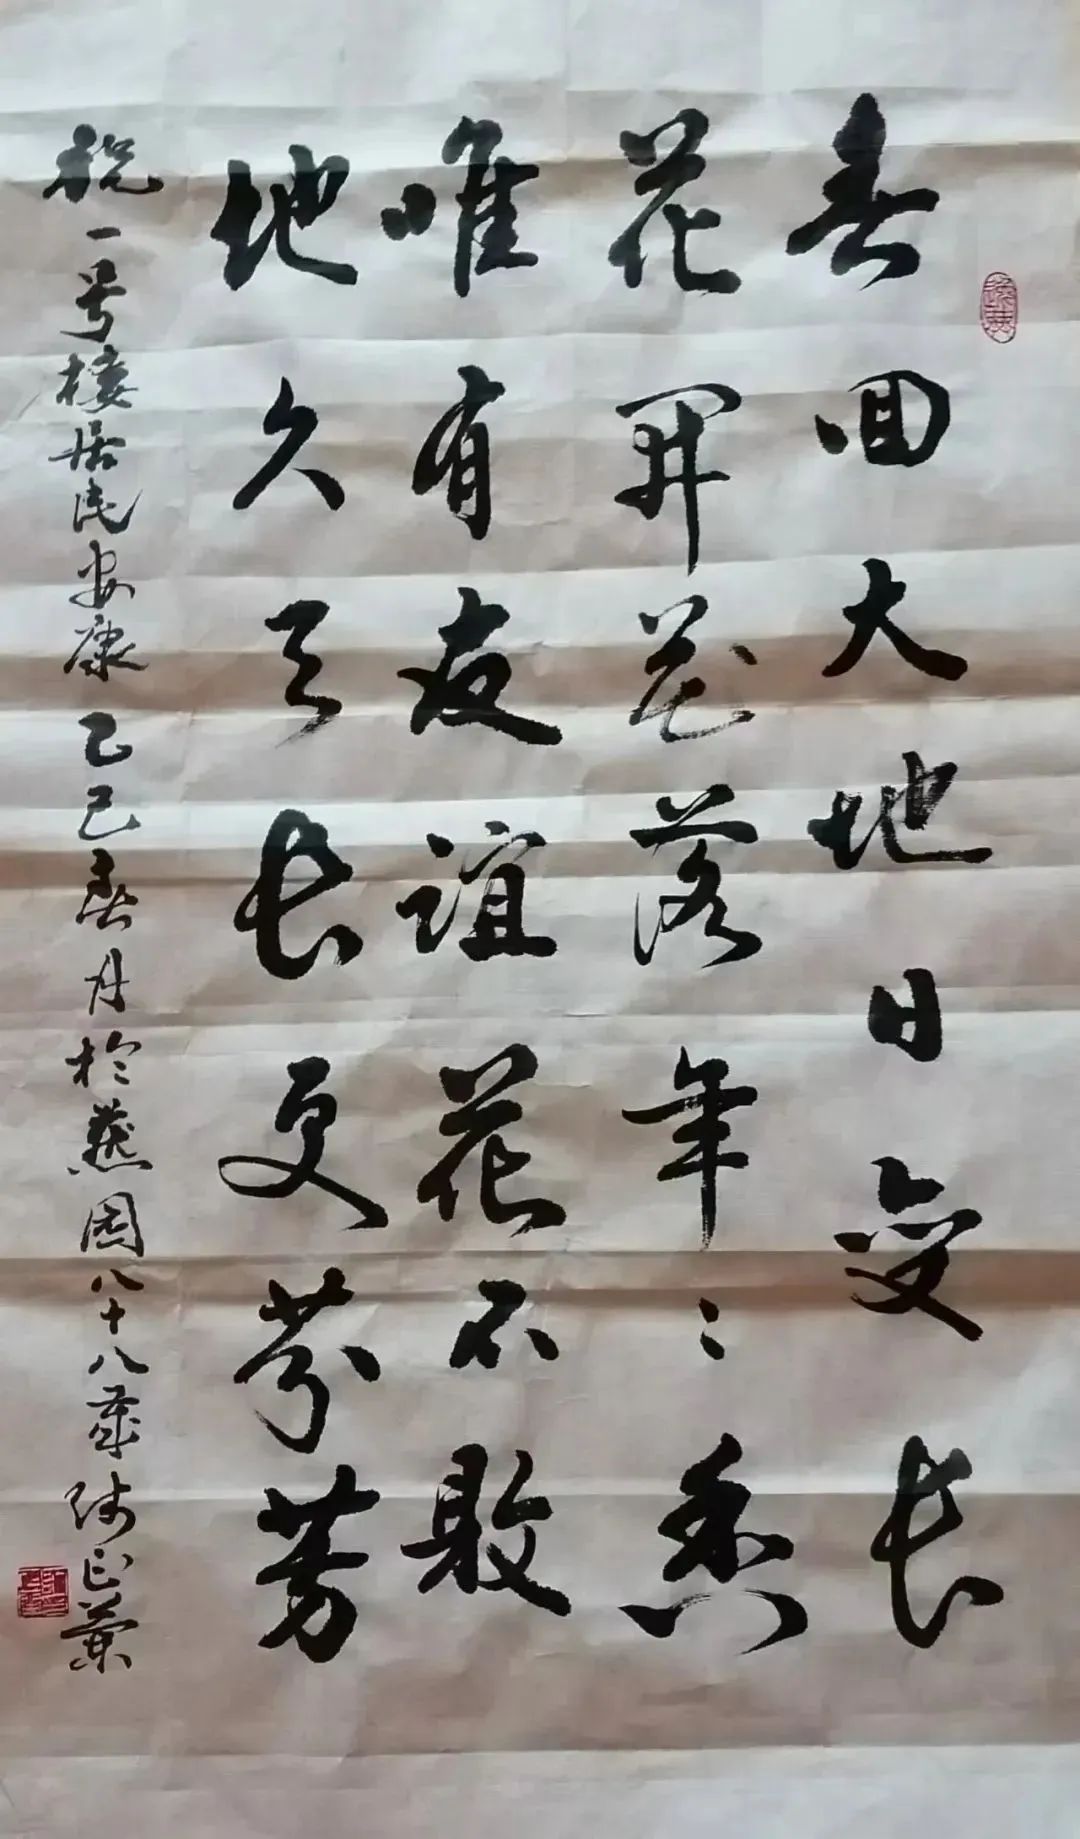 春回大地日变长
花开花落年々香
唯有友谊花不败
地久天长更芬芳
祝一号楼居民安康 乙巳春月於燕园八十八岁